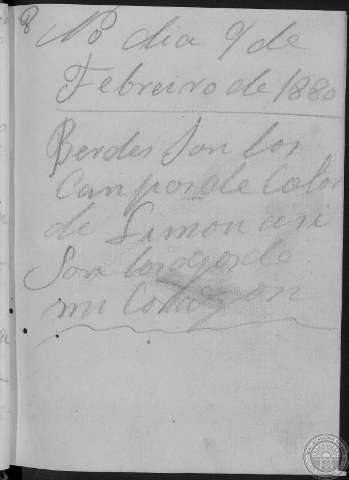 8
No dia 9 de
Febreiro de 1880
Berdes Son los
Campos de Color
de Limon asi
Son los ojos de
mi Corazon